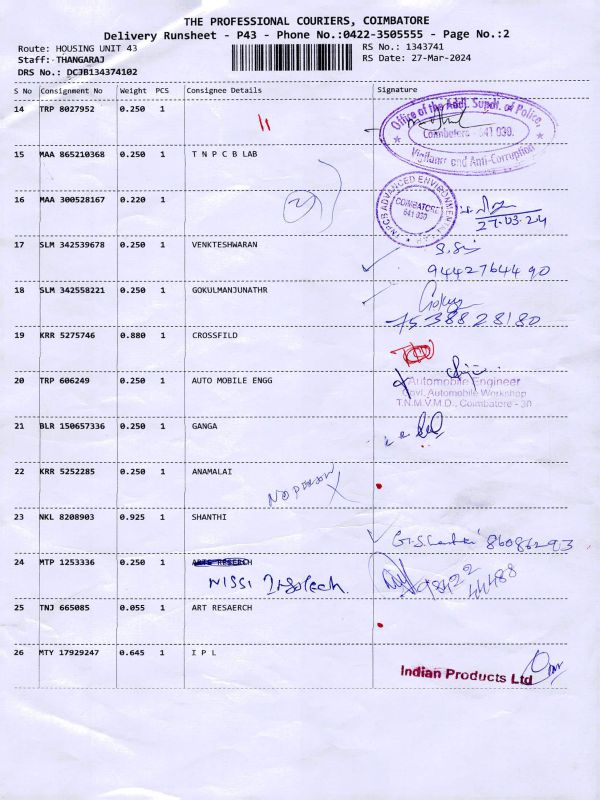 THE PROFESSIONAL COURIERS, COIMBATORE
Delivery Runsheet - P43 - Phone No.:0422-3505555 - Page No.:2
Route: HOUSING UNIT 43 RS No.: 1343741
Staff: THANGARAJ RS Date: 27-Mar-2024
DRS No.: DCJB134374102
S No Consignment No Weight PCS Consignee Details Signature
14 TRP 8027952 0.250 1
Office of the Addl. Supdt. of Police
Coimbatore - 641 030.
Vigilance and Anti-Corruption
15 MAA 865210368 0.250 1 T N P C B LAB
16 MAA 300528167 0.220 1
TNPCB ADVANCED ENVIRONMENTAL LAB
COIMBATORE
641 030
27.03.24
17 SLM 342539678 0.250 1 VENKTESHWARAN
9442764490
18 SLM 342558221 0.250 1 GOKULMANJUNATHR
Gokul
7538828180
19 KRR 5275746 0.880 1 CROSSFILD
20 TRP 606249 0.250 1 AUTO MOBILE ENGG
Automobile Engineer
Govt. Automobile Workshop
T.N.M.V.M.D., Coimbatore - 30
21 BLR 150657336 0.250 1 GANGA
22 KRR 5252285 0.250 1 ANAMALAI
NO PERSON
23 NKL 8208903 0.925 1 SHANTHI
86086293
24 MTP 1253336 0.250 1 ARTS RESERCH
NISSI Infotech.
98422
44488
25 TNJ 665085 0.055 1 ART RESAERCH
26 MTY 17929247 0.645 1 I P L
Indian Products Ltd